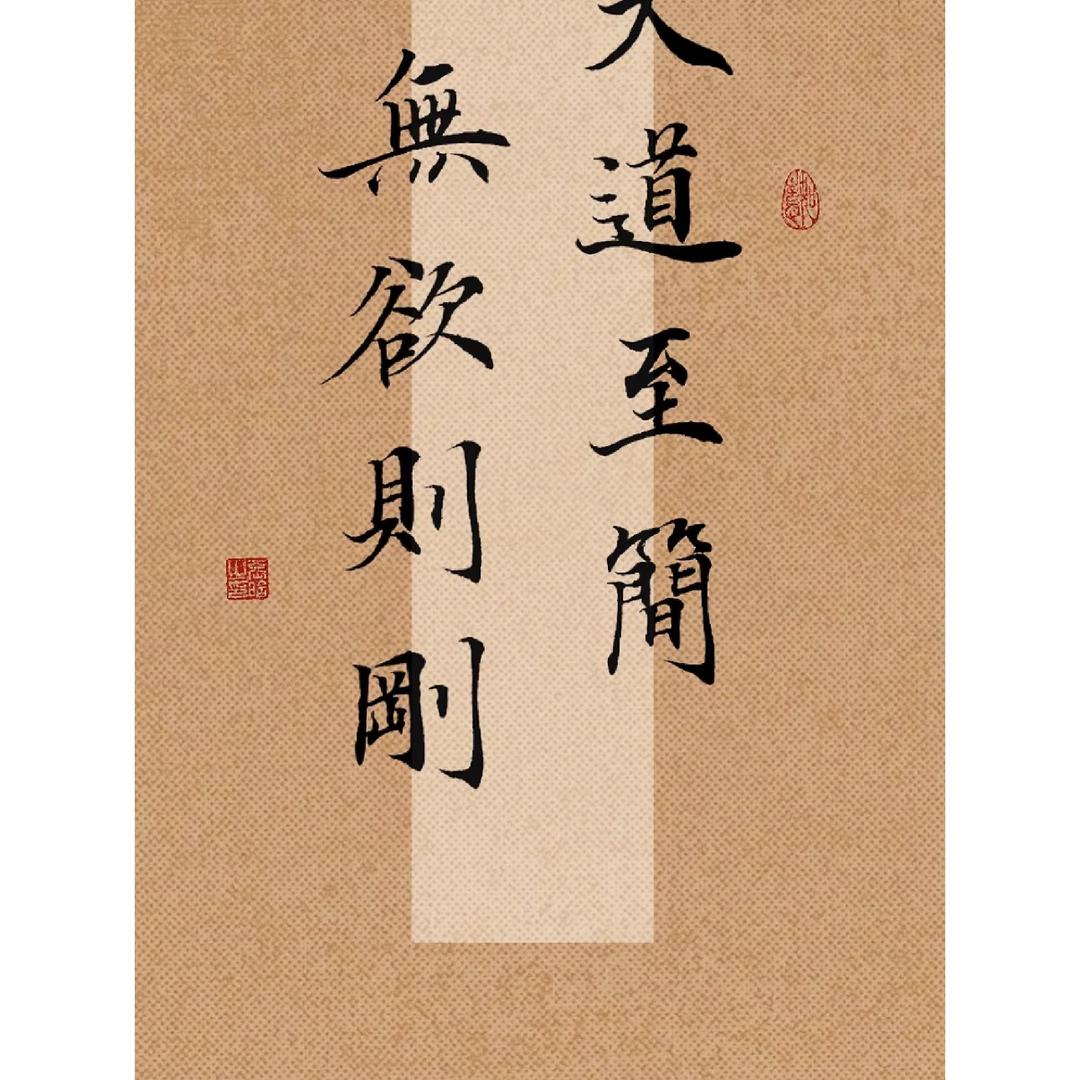 大道至簡
無欲則剛